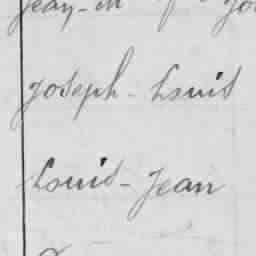 Jean-M
Joseph-Louis
Louis-Jean